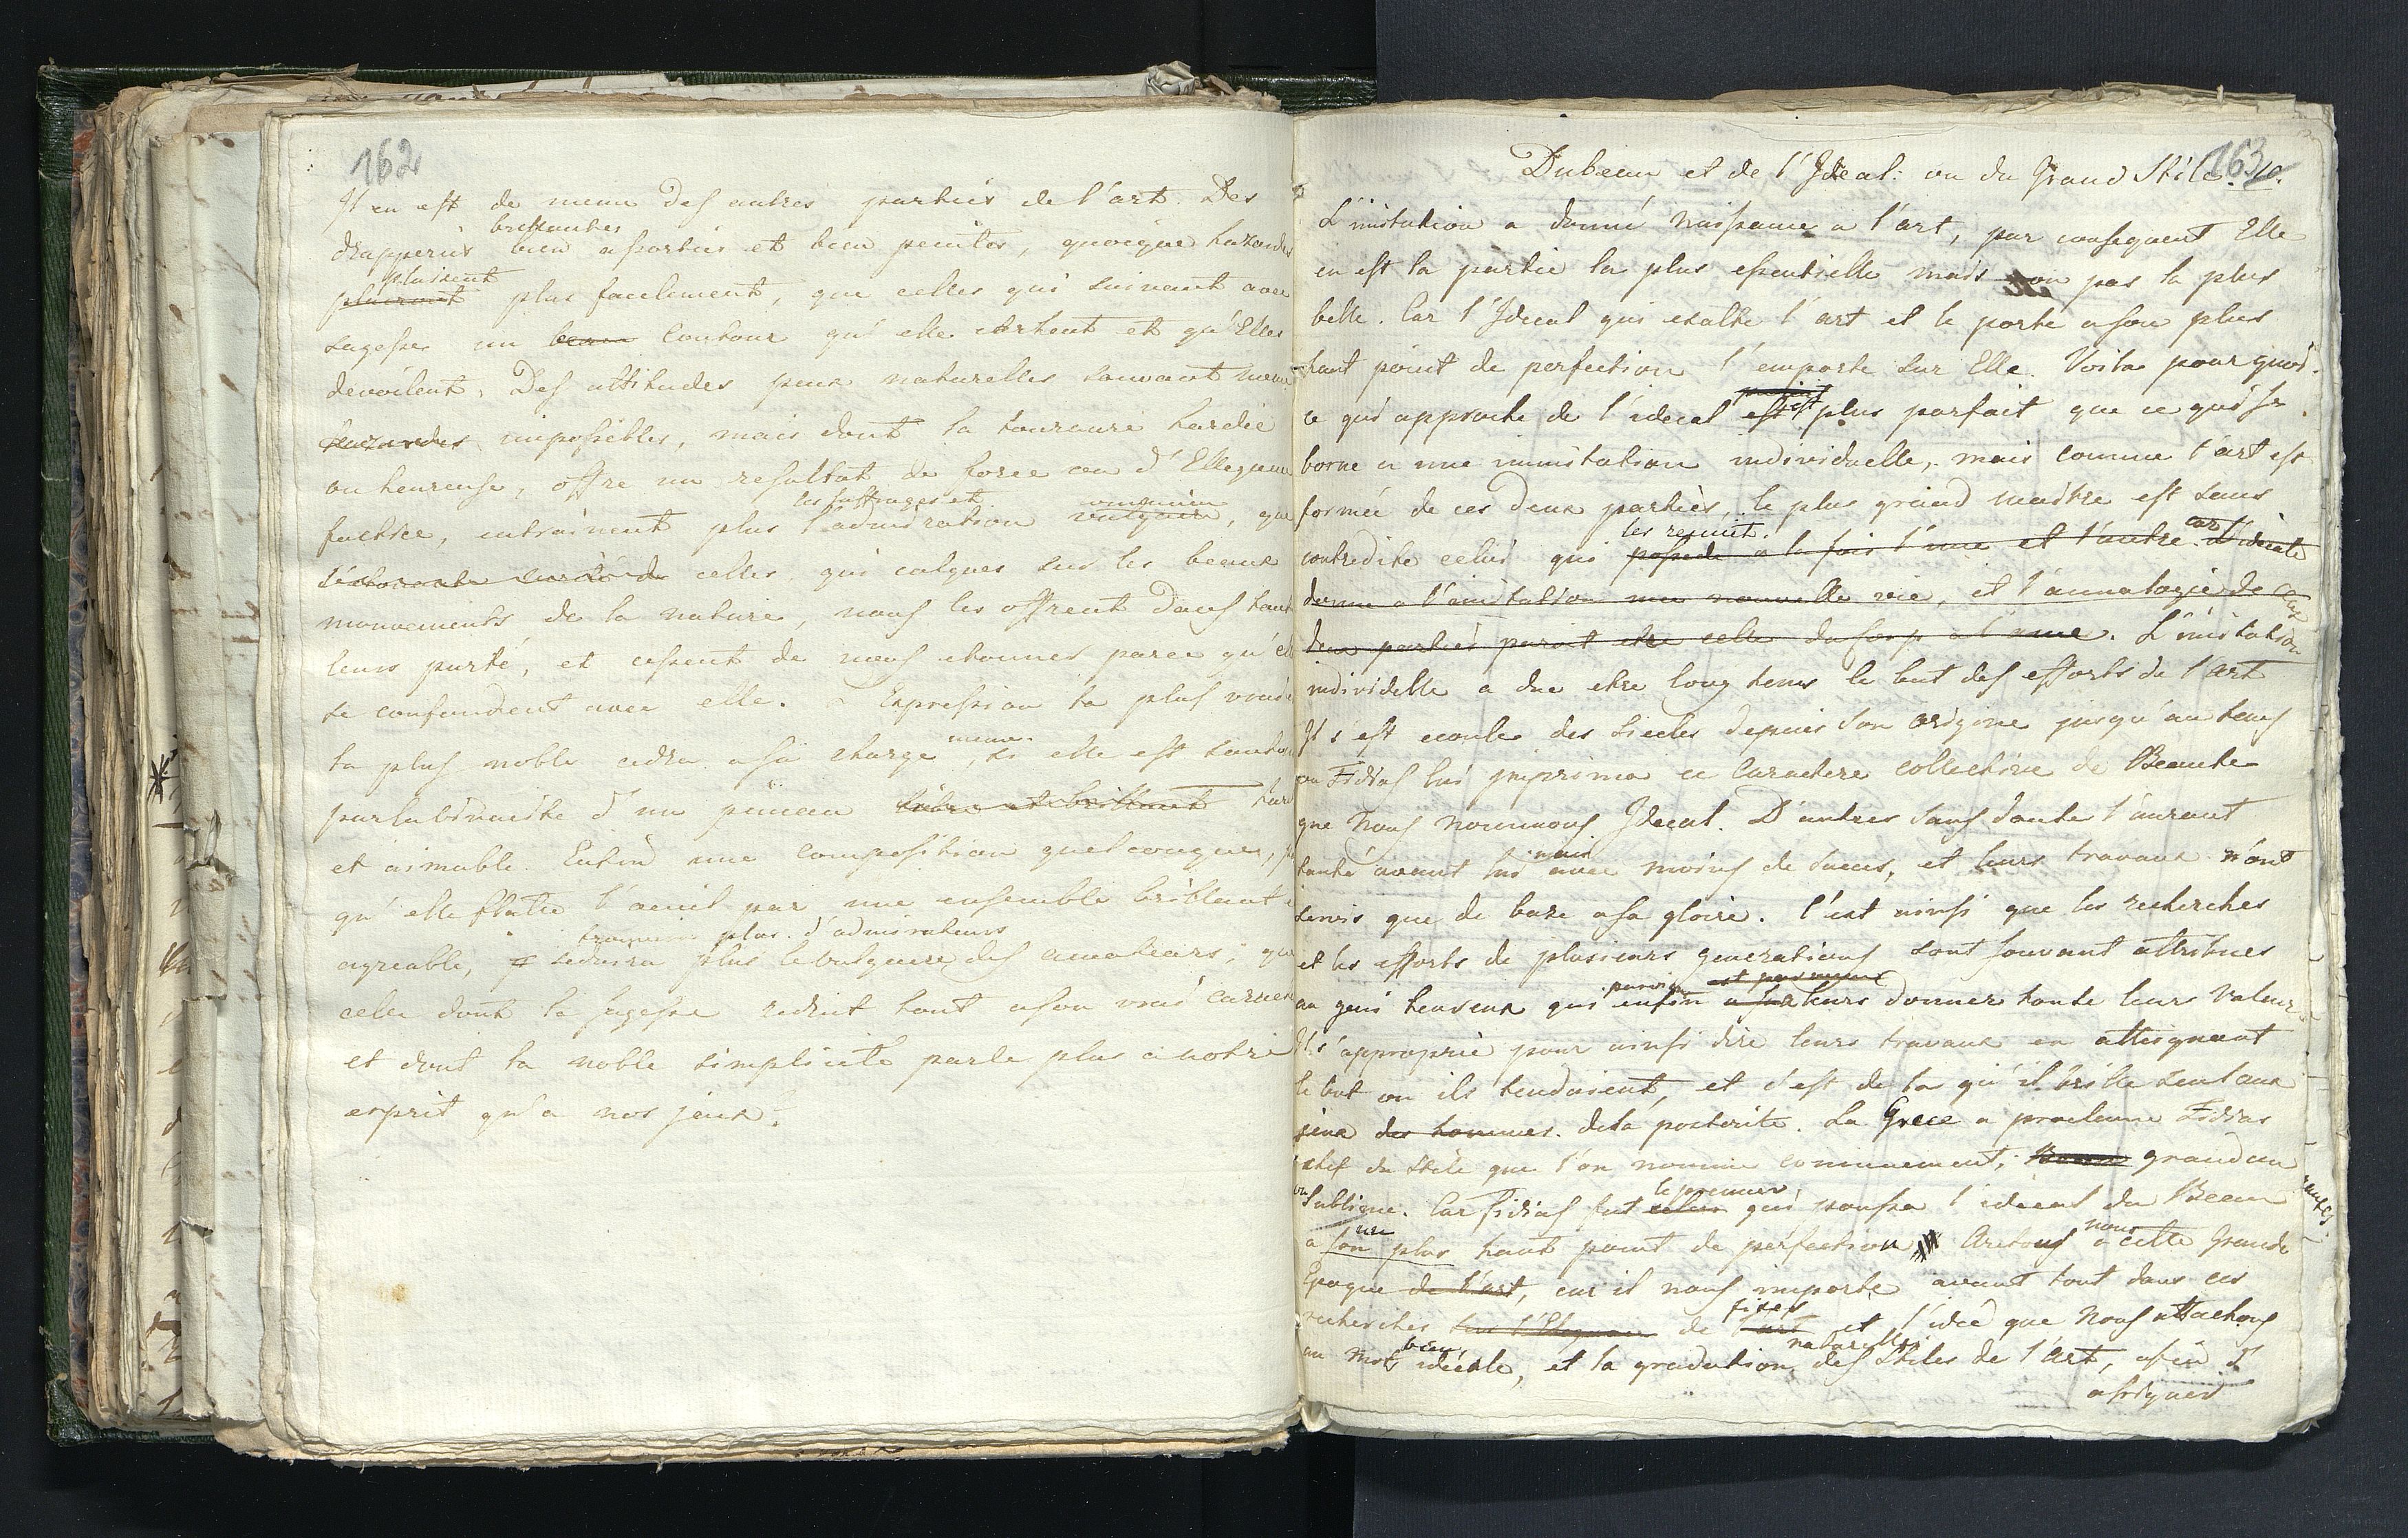 162
Il en est de meme des autres parties de l'art. Des
brillantes
drapperies bien assorties et bien peintes, quoique hazardes
plaisent
plairont plus facilement, que celles qui suivant avec
sagesse un beau contour qu'elle cachent et qu'Elles
devoilent, Des attitudes peux naturelles souvant meme
hazardes impossibles, mais dont la tournure hardie
ou heureuse, offre un resultat de force ou d'Ellegance
les suffrages et commun
factice, entrainent plus l'admiration vulgaire, que
celles qui calques sur les beaux
mouvements de la nature, nous les offrent dans toute
leurs purté, et cessent de nous etonner parce qu'elles
se confondent avec elle. L'Expression la plus vraie
meme
la plus noble cedra a sa charge, si elle est soutenu
par la binaite d'un pinceau libre et brillant
et aimable. Enfin une composition quelconque,
qu'elle flatte l'oeuil par une ensemble brillant et
trouvera plus d'admirateurs
agreable, seduira plus le vulgaire des amateurs, que
celle dont la sagesse reduit tout a son vrai caractere
et dont la noble simplicité parle plus a notre
esprit qu'a nos jeux.
163
Du beau et de l'Ideal: ou du Grand Stile. 10.
L'imitation a donné naissance a l'art, par consequent Elle
en est la partie la plus essentielle mais non pas la plus
belle. Car l'Ideal qui exalte l'art et le porte a son plus
haut point de perfection l'emporte sur Elle. Voila pourquoi
ce qui approche de l'ideal est plus parfait que ce qui se
borne a une immitation individuelle, mais comme l'art est
formée de ces deux parties, le plus grand maitre est sans
les reunit. car
contredite celui qui possede a la fois l'une et l'autre. L'ideale
donne a l'imitation une nouvelle vie, et l'annalogie de ces
deux parties paroit etre celle du corp a l'ame. L'imitation
individelle a due etre long tems le but des efforts de l'art
Il s'est ecoules des siecles depuis son origine jusqu'au tems
ou Fidias lui imprima ce Caractere collective de Beaute
que nous nommons Ideal. D'autres sans doute l'auront
mais
tenté avant lui avec moins de succes, et leurs travaux n'ont
servis que de base a sa gloire. C'est ainsi que les recherches
et les efforts de plusieurs generations sont souvant attribues
parvin
au genie heureux qui enfin a sur leurs donner toute leurs valeur
Il s'approprie pour ainsi dire leurs travaux en atteignant
le but ou ils tendoient, et c'est de la qu'il brille seul aux
jeux des hommes. de la posterite. La Grece a proclame Fidias
chef du stile que l'on nomme communement, Beau grand ou
le premier
ou Sublime. Car Fidias fut celui qui poussa l'ideal du Beau
un nous
a son plus haut point de perfection Aretons a cette Grande
Epoque de l'art, car il nous importe avant tout dans ces
fixer
recherches sur l'Elegance de l'art et l'idée que nous attachons
bien naturelles
au mot ideale, et la gradation des stiles de l'art, afin d'
assigner